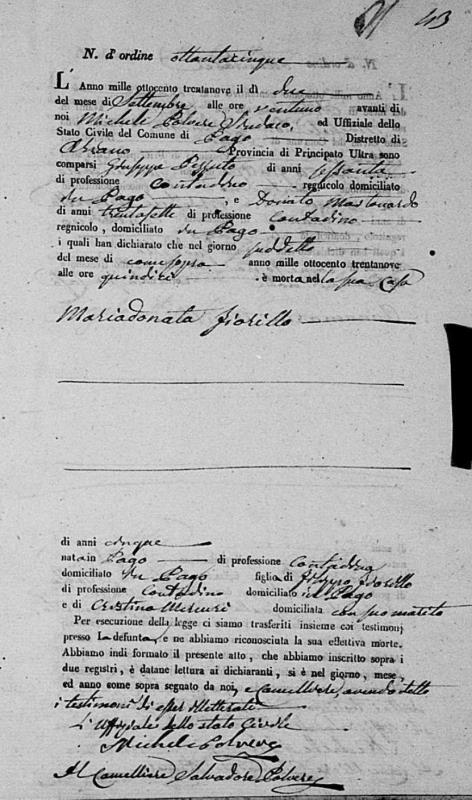 43
N. d'ordine ottantacinque
L'Anno mille ottocento trentanove il dì due
del mese di Settembre alle ore ventuno avanti di
noi Michele Polvere Sindaco, ed Uffiziale dello
Stato Civile del Comune di Pago Distretto di
Ariano Provincia di Principato Ultra sono
comparsi Giuseppe Pizzuto di anni sessanta
di professione contadino regnicolo domiciliato
in Pago, e Donato Mastonardo
di anni trentasette di professione Contadino
regnicolo, domiciliato in Pago
i quali han dichiarato che nel giorno suddetto
del mese di come sopra anno mille ottocento trentanove
alle ore quindici è morta nella sua Casa
Mariadonata Fiorillo
di anni cinque
nata in Pago di professione contadina
domiciliato in Pago figlia di Filippo Fiorillo
di professione Contadino domiciliato in Pago
e di Cristina Mercuri domiciliata con suo marito
Per esecuzione della legge ci siamo trasferiti insieme coi testimonj
presso la defunta, e ne abbiamo riconosciuta la sua effettiva morte.
Abbiamo indi formato il presente atto, che abbiamo inscritto sopra i
due registri, è datane lettura ai dichiaranti, si è nel giorno, mese,
ed anno come sopra segnato da noi, e Cancelliere, avendo detto
i testimoni di esser illetterati
L'Uffiziale dello stato Civile
Michele Polvere
Il Cancelliere Salvadore Polvere